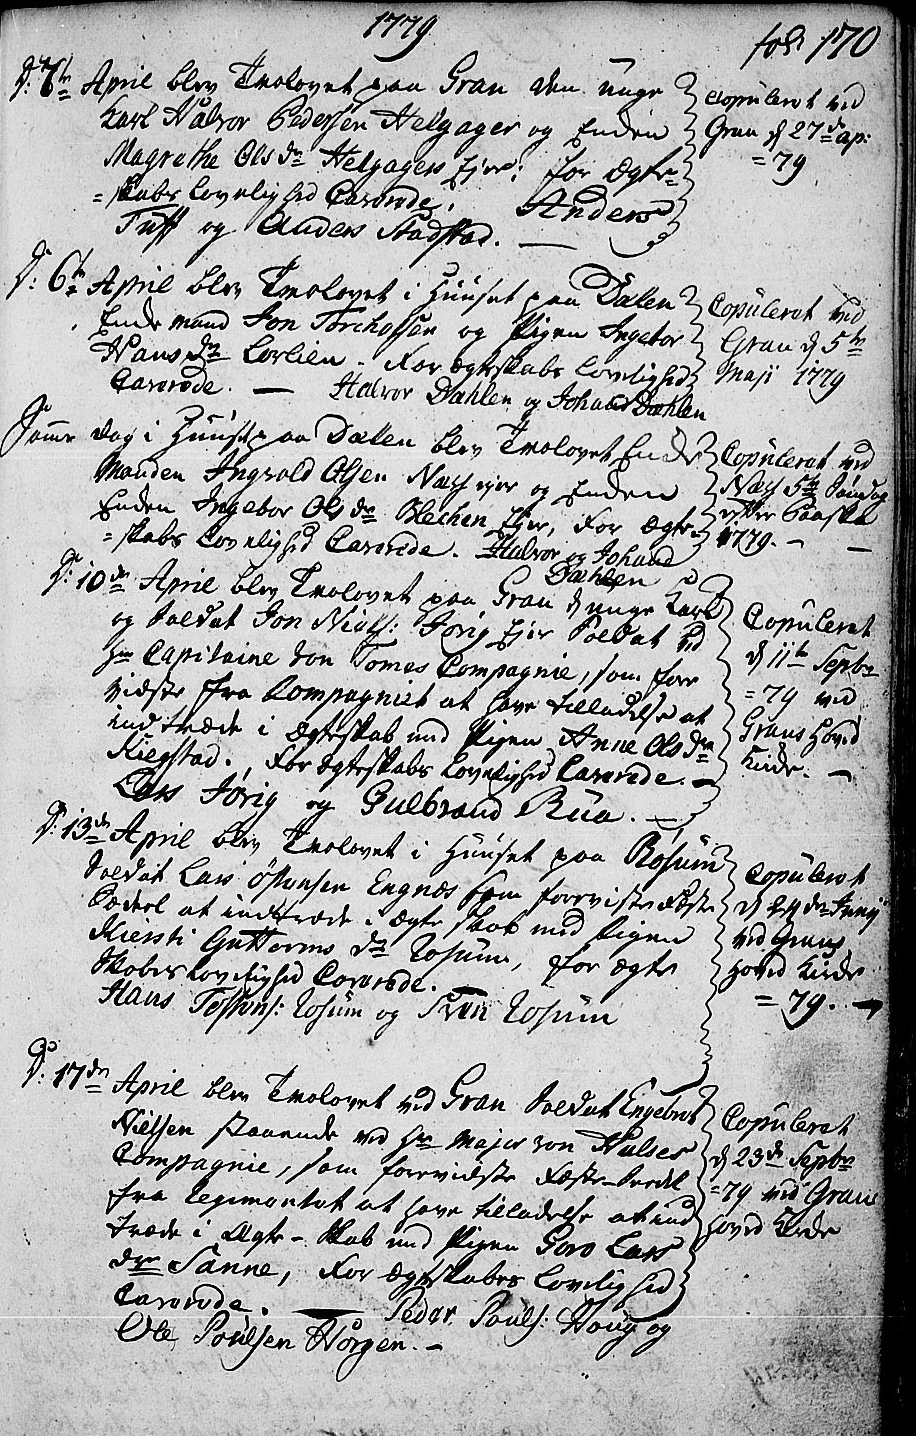 1779
fol: 170
D: 6te April blev Trolovet paa Gran den unge
Karl Halvor Pedersen Helgager og Enden
Magrethe Ols dr Helgagers Ejer: for Ægte-
=skabs Lovelighed Caverede. Anders
Tuff og Anders Stadstad. —
Copuleret ved
Gran d 27de Ap:
= 79
D: 6te April blev Trolovet i Huuset paa Dælen
Enke mand Jon Torchelsen og Pigen Ingebor
Hans dr Lorlien. For Ægteskabs Lovelighed
Caverede. — Halvor Dæhlen og Johans Dæhlen
Copuleret ved
Gran d 5te
Maji 1779
Samme dag i Huuset paa Dælen blev Trolovet Enke
Manden Ingvold Olsen Næs ejer og Enken
Enken Ingebor Ols dr Blechen Ejer, For Ægte-
=skabs Lovelighed Caverede. Halvor og Johans
Dæhlen
Copuleret ved
Næs 5te Søndag
efter Paaske
1779. —
D: 10de April blev Trolovet paa Gran d unge Karl
og Soldat Jon Niels: Jorig Ejer Soldat ved
Hr Capitaine von Tomes Compagnie, som fore
vidste fra Compagniet at have tilladelse at
indtræde i Ægteskab med Pigen Anne Ols dr
Kiegstad. For Ægteskabs Lovelighed Caverede. —
Lars Jorig og Gulbrand Rua. —
Copuleret
d 11te Septbr
= 79 ved
Grans Hoved
Kirke. —
D: 13de April blev Trolovet i Huuset paa Rosum
Soldat Lars Østensen Engnæs som foreviste Feste
Sædel at indtræde i Ægte skab med Pigen
Kiersti Guttorms dr Rosum, for Ægte
Skabets Lovelighed Caverede. —
Hans Testens: Rosum og Sven Rosum
Copuleret
d 24de Junij
ved Grans
Hoved Kirke
= 79. —
D: 17de April blev Trolovet ved Gran Soldat Engebret
Nielsen staaende ved Hr Major von Hulses
Compagnie, som forevidste Feste-Sedel
fra Regimentet at have tilladelse at ind
træde i Ægte-Skab med Pigen Goro Lars
dr Sanne, For Ægteskabets Lovelighed
Caverede. — Peder Pouls: Houg og
Ole Poulsen Horgen. —
Copuleret
d 23de Septbr
= 79 ved Grans
Hoved Kirke